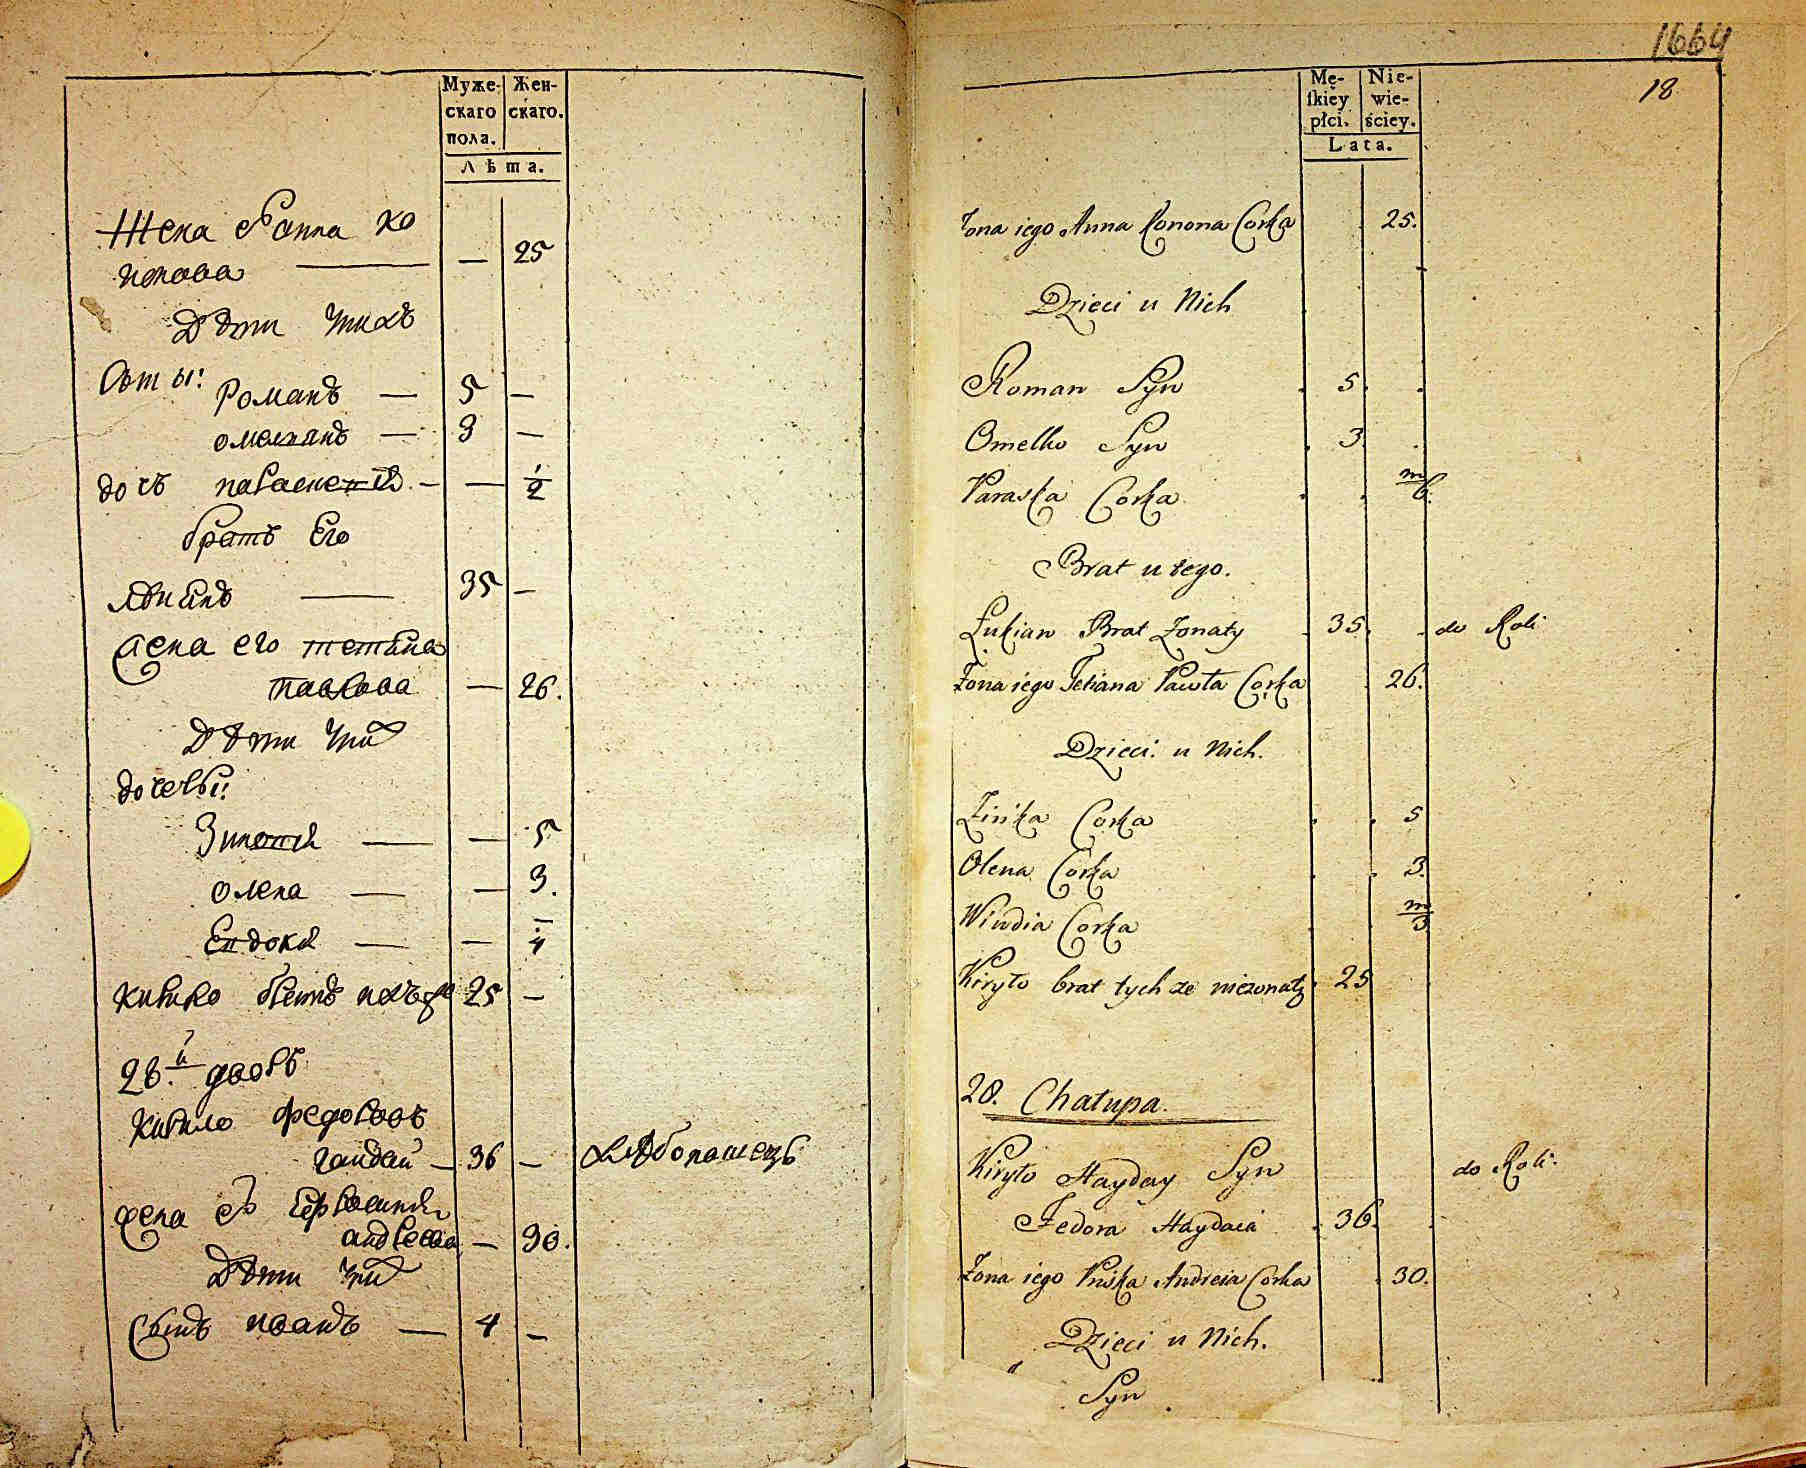 Муже-
скаго
пола.
Жен-
скаго.
Лѣта.
Жена Его анна ко
нонова — — 25
Дѣти ихъ
Романъ — 5 —
омелянъ — 3 —
дочь параскевія — — 1/2
братъ Его
— 35 —
жена его тетіана
павлова — 26.
Дѣти ихъ
дочеры:
Зиновія — — 5
олена — — 3.
Евдокія — — 1/4
кирило братъ ихъ 25 —
28.й дворъ
кирило федоровъ
гайдай — 36 — хлѣбопашецъ
жена
андреева — 30.
Дѣти ихъ
Сынъ иванъ — 4 —
1664
18
Mę-
skiéy
płci.
Nie-
wie-
ściey.
Lata.
Żona iego Anna Konona Corka 25.
Dzieci u Nich
Roman Syn 5.
Omelko Syn 3.
Paraska Corka m/6.
Brat u tego.
Łukian Brat Żonaty 35. do Roli
Żona iego Tetiana Pawła Corka 26.
Dzieci u Nich.
Zińka Corka 5
Olena Corka 3.
Wiwdia Corka m/3
Kiryło brat tych ze nieżonaty 25
28. Chałupa.
Kiryło Hayday Syn do Roli.
Fedora Haydaia 36.
Żona iego Priska Andreia Corka 30.
Dzieci u Nich.
Syn